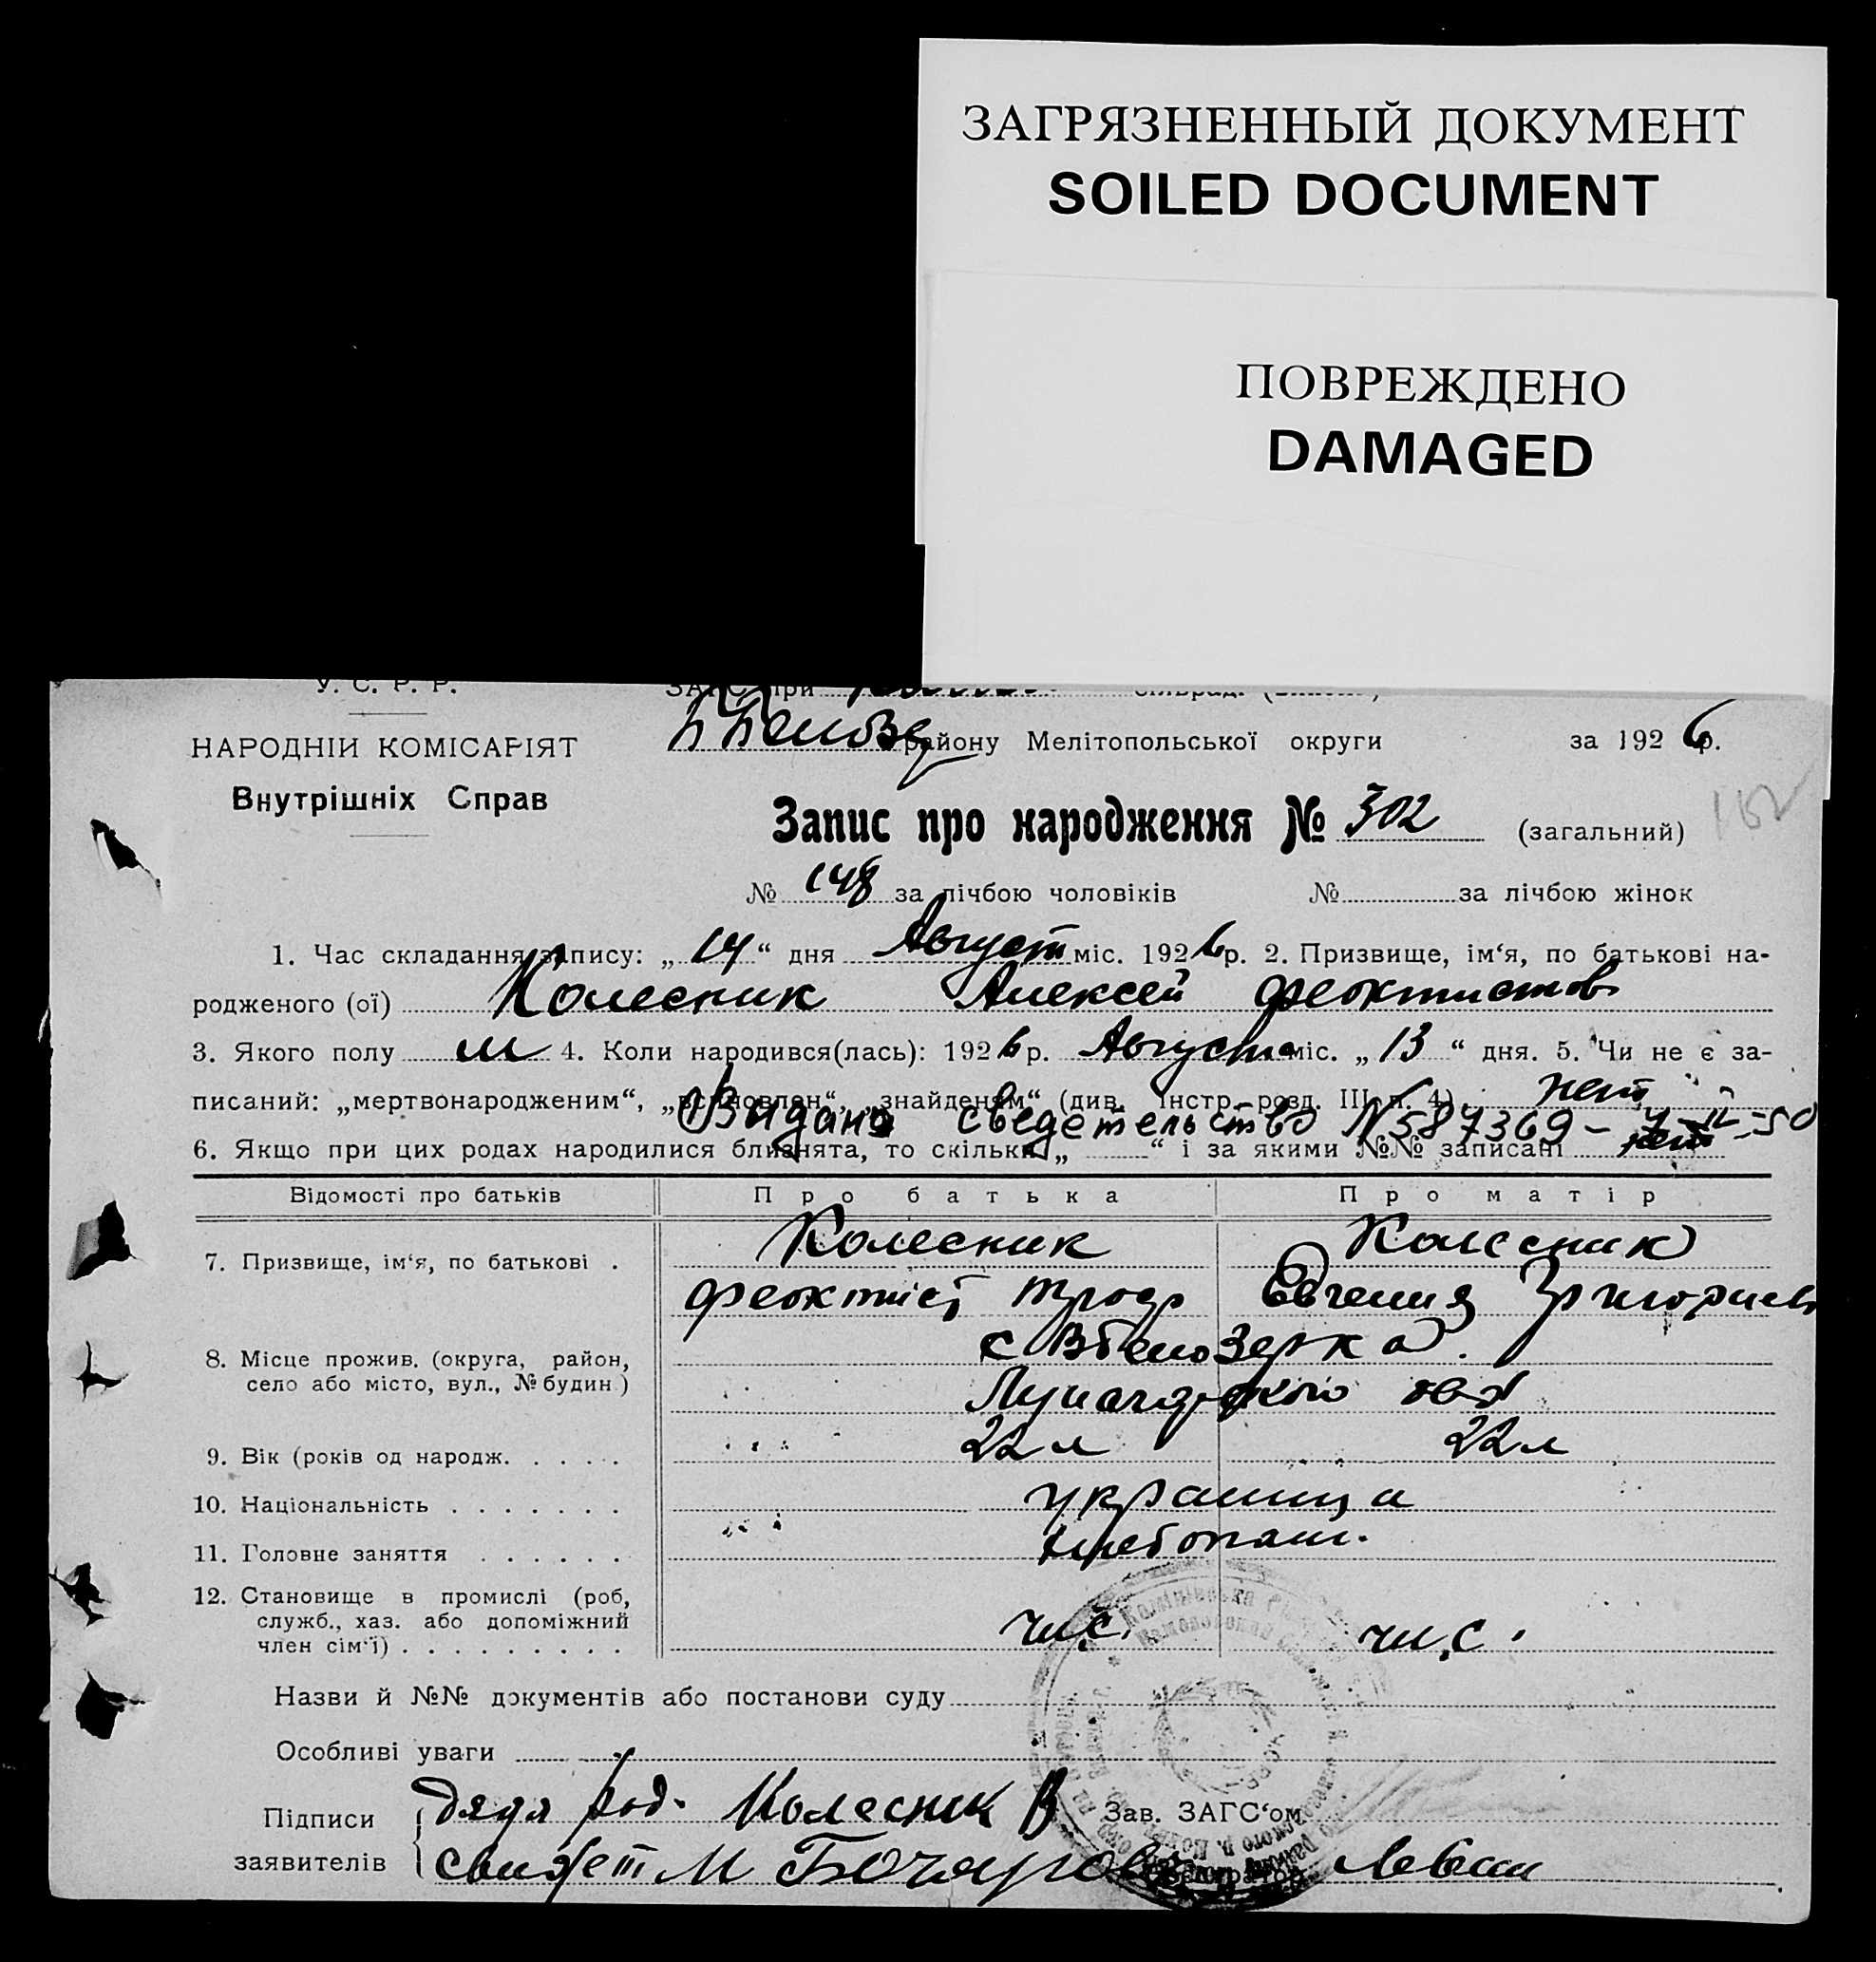 ЗАГРЯЗНЕННЫЙ ДОКУМЕНТ
SOILED DOCUMENT
ПОВРЕЖДЕНО
DAMAGED
У. С. Р. Р.
ЗАГС при
НАРОДНІЙ КОМІСАРІЯТ
Внутрішніх Справ
району Мелітопольської округи за 1926 р.
Запис про народження № 302 (загальний)
162
№ 148 за лічбою чоловіків № за лічбою жінок
1. Час складання запису: „14“ дня Август міс. 1926 р. 2. Призвище, ім‘я, по батькові на-
родженого (ої) Колесник Алексей Феоктистов
3. Якого полу м 4. Коли народився(лась): 1926 р. Августа міс. „13“ дня. 5. Чи не є за-
писаний: „мертвонародженим“, „знайденим“ (див. Інстр. розд. III п. 4) нет
Видано сведетельство N 587369 – 7-II-50
6. Якщо при цих родах народилися близнята, то скільки „ “ і за якими №№ записані нет
Відомості про батьків Про батька Про матір
7. Призвище, ім‘я, по батькові . Колесник Колесник
Феоктист Евгения Григориев
8. Місце прожив. (округа, район,
село або місто, вул., № будин)
с Вбелозерка.
9. Вік (років од народж. . . . . 22 л 22 л
10. Національність . . . . . . . украинца
11. Головне заняття . . . . . . хлебопаш.
12. Становище в промислі (роб,
служб., хаз. або допоміжний
член сім‘ї) . . . . . . . . . чл.с. чл.с.
Назви й №№ документів або постанови суду
Особливі уваги
Підписи
заявителів
дядя род. Колесник В
Зав. ЗАГС‘ом
свидет М Бочаров